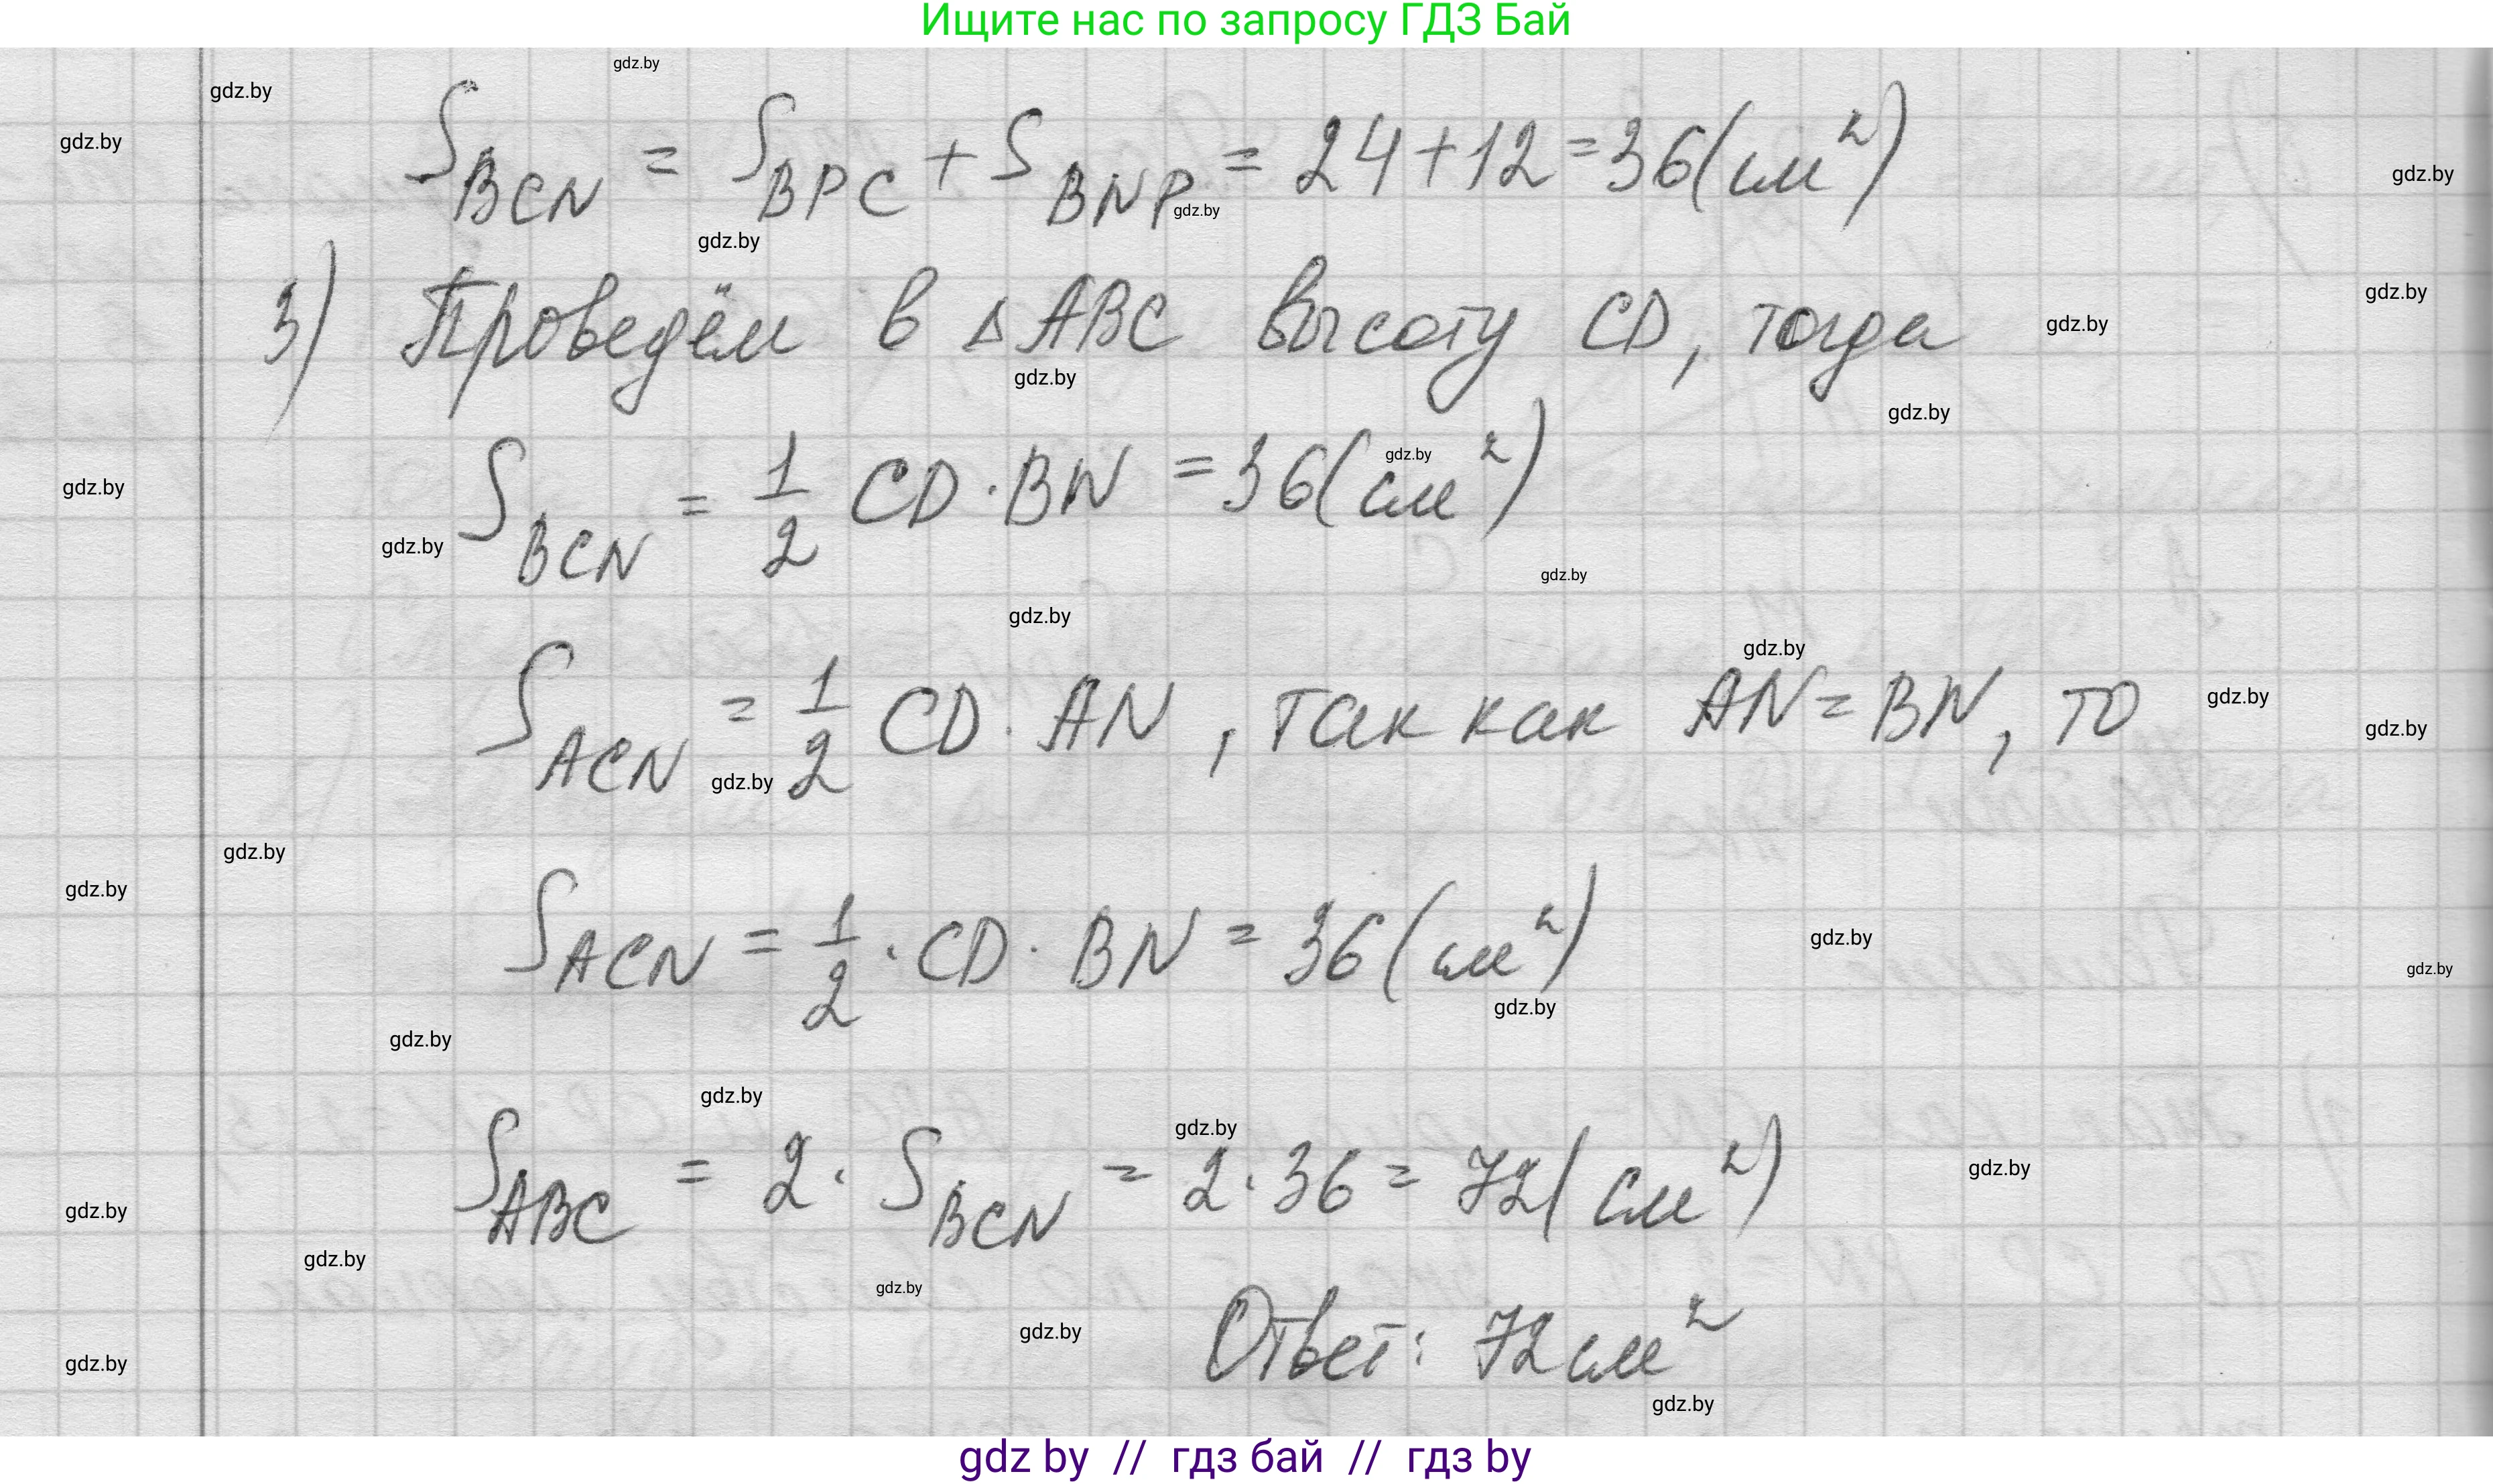 Ищите нас по запросу ГДЗ Бай
gdz.by
gdz.by
gdz.by
S_BCN = S_BPC + S_BNP = 24+12=36(см²)
gdz.by
gdz.by
gdz.by
3) Проведём в △ABC высоту CD, тогда
gdz.by
gdz.by
gdz.by
gdz.by
S_BCN = 1/2 CD·BN =36(см²)
gdz.by
gdz.by
gdz.by
gdz.by
gdz.by
gdz.by
S_ACN = 1/2 CD·AN, так как AN=BN, то
gdz.by
gdz.by
gdz.by
gdz.by
gdz.by
S_ACN = 1/2·CD·BN = 36(см²)
gdz.by
gdz.by
gdz.by
gdz.by
gdz.by
gdz.by
S_ABC = 2·S_BCN = 2·36 = 72(см²)
gdz.by
gdz.by
gdz.by
gdz.by
gdz.by
Ответ: 72см²
gdz.by
gdz.by
gdz by // гдз бай // гдз by